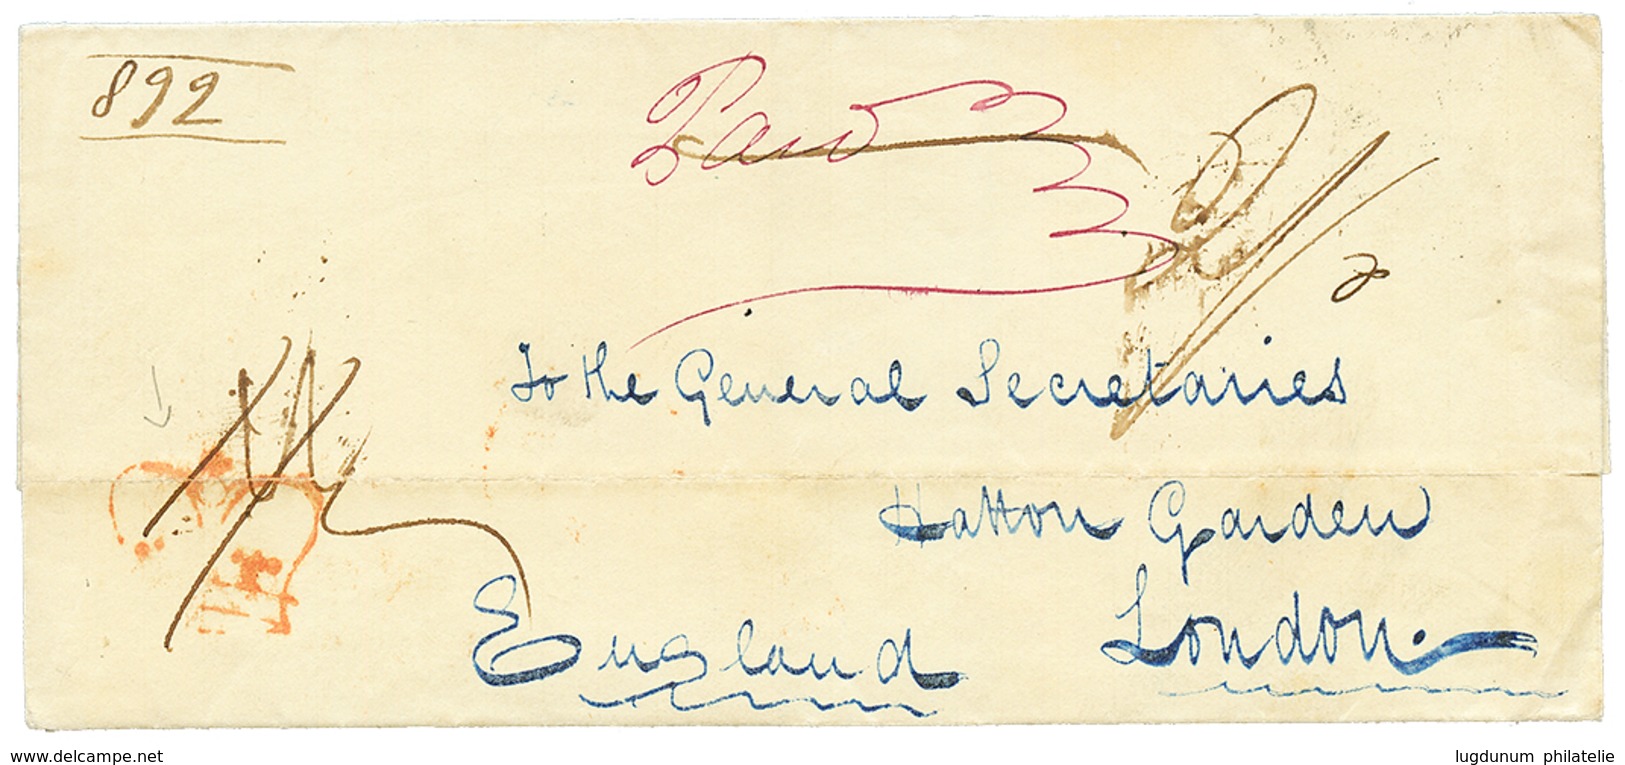 892
Paid
2/
To the General Secretaries
Hatton Garden
London.
England
www.delcampe.net
lugdunum philatelie